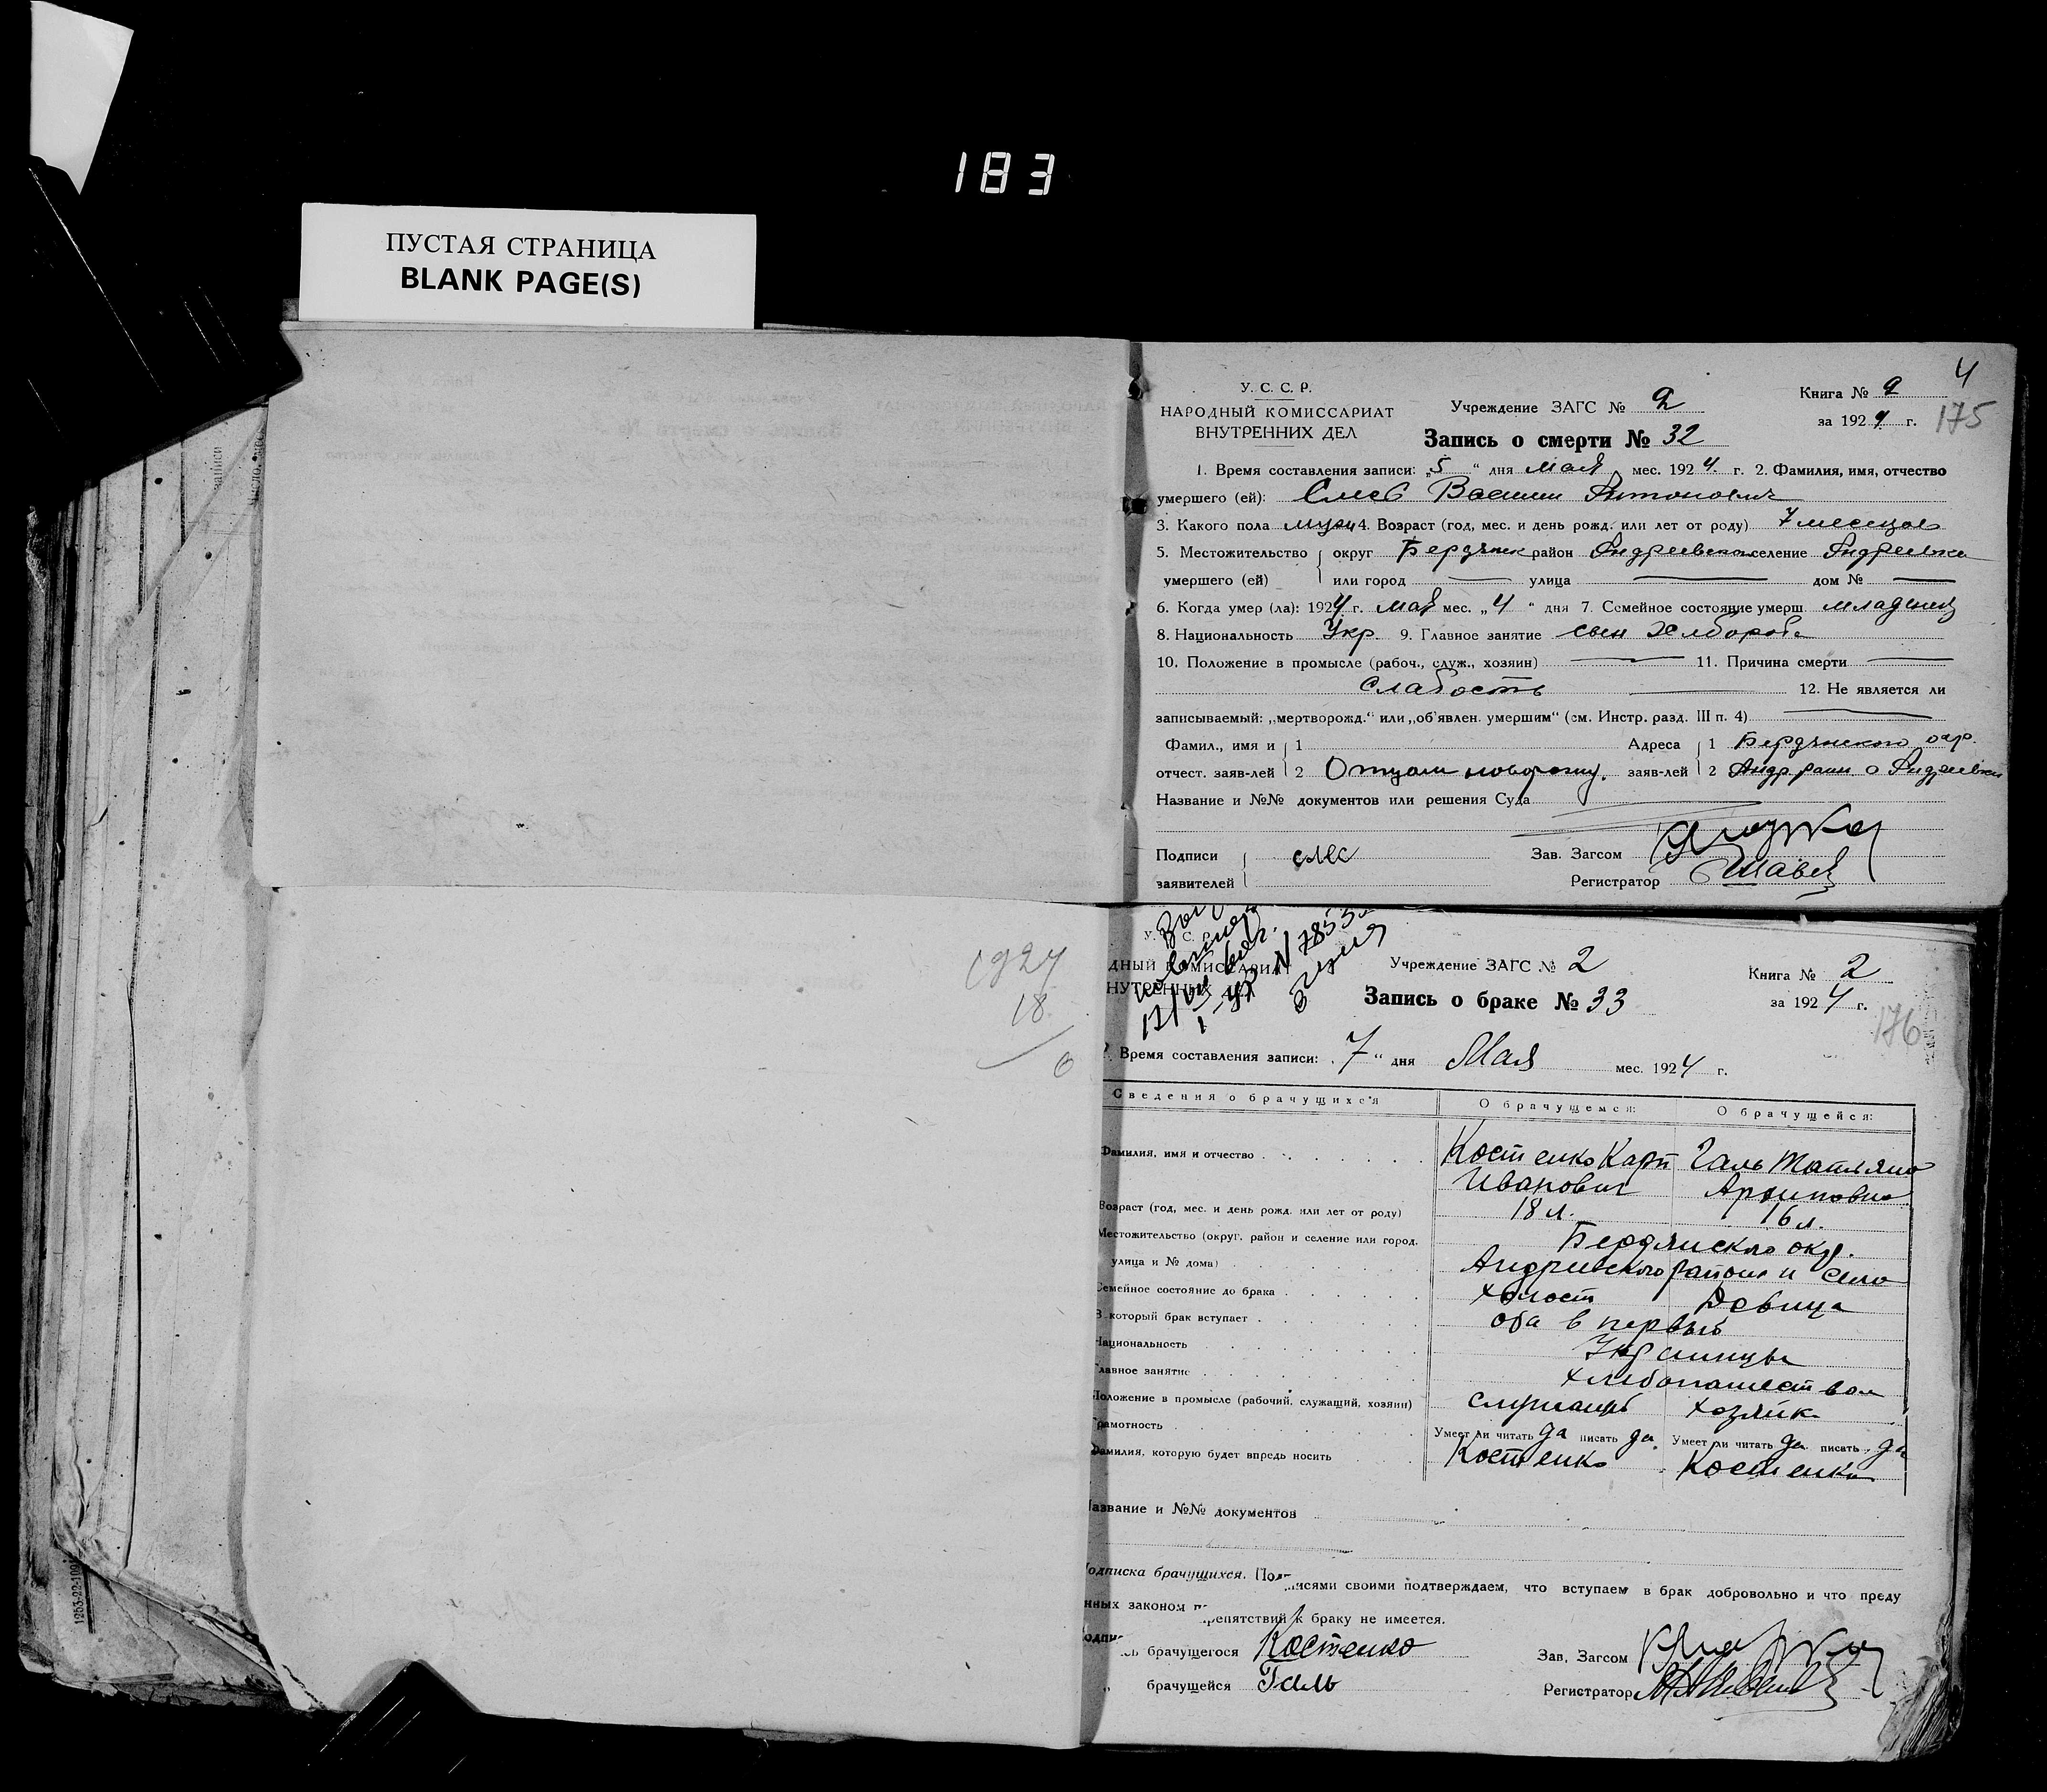 183
ПУСТАЯ СТРАНИЦА
BLANK PAGE(S)
4
У. С. С. Р.
НАРОДНЫЙ КОМИССАРИАТ
ВНУТРЕННИХ ДЕЛ
Учреждение ЗАГС № 2
Книга № 2
за 1924 г. 175
Запись о смерти № 32
1. Время составления записи: „5“ дня мая мес. 1924 г. 2. Фамилия, имя, отчество
умершего (ей): Слесь Антонович
3. Какого пола муж 4. Возраст (год, мес. и день рожд. или лет от роду) 7 месяцов
5. Местожительство округ Бердянск район Андреевский селение Андреевка
умершего (ей) или город — улица — дом № —
6. Когда умер (ла): 1924 г. мая мес. „4“ дня 7. Семейное состояние умерш. младенец
8. Национальность Укр. 9. Главное занятие сын хлебороба
10. Положение в промысле (рабоч., служ., хозяин) — 11. Причина смерти —
слабость — 12. Не является ли
записываемый: „мертворожд.“ или „об'явлен. умершим“ (см. Инстр. разд. III п. 4) —
Фамил., имя и 1 Адреса 1 Бердянского окр.
отчест. заяв-лей 2 заяв-лей 2 Андр. раин. с Андреевки
Название и №№ документов или решения Суда
Подписи слес Зав. Загсом
заявителей Регистратор
1924
18
6
У. С. С. Р.
ДНЫЙ КОМИССАРИАТ
НУТРЕННИХ ДЕЛ
N 7853
Учреждение ЗАГС № 2
Книга № 2
за 1924 г.
176
Запись о браке № 33
Время составления записи: „7“ дня Мая мес. 1924 г.
Сведения о брачущихся О брачущемся: О брачущейся:
Фамилия, имя и отчество Костенко Карп Галь Татьяна
Иванович Архиповна
Возраст (год, мес. и день рожд. или лет от роду) 18 л. 16 л.
Местожительство (округ, район и селение или город, Бердянского окр.
улица и № дома) Андреевского района и село
Семейное состояние до брака холост Девица
В который брак вступает оба в первый
Национальность Украинцы
Главное занятие хлебопашеством
Положение в промысле (рабочий, служащий, хозяин) служащий хозяйка
Грамотность Умеет ли читать да писать да Умеет ли читать да писать да
Фамилия, которую будет впредь носить Костенко Костенко
Название и №№ документов
одписка брачущихся. Под
исями своими подтверждаем, что вступаем в брак добровольно и что преду
нных законом п
репятствий к браку не имеется.
брачущегося Костенко Зав. Загсом
„ брачущейся Галь Регистратор
1253-22-109